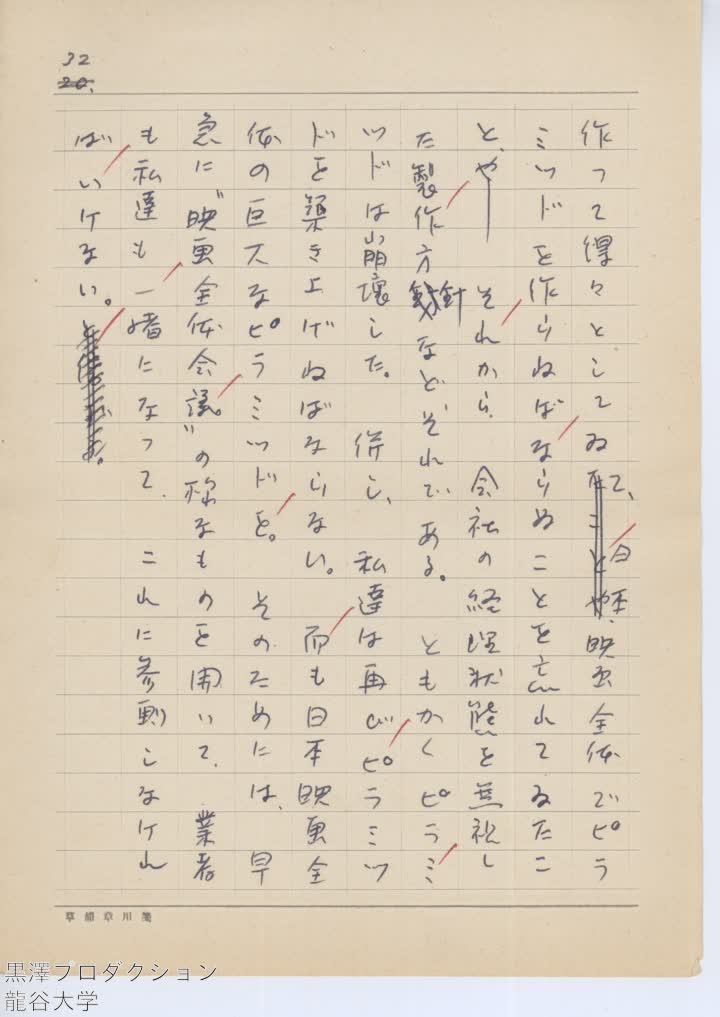 32
20.
作って得々としてゐて、日本映画全体でピラ
ミッドを作らねばならぬことを忘れてゐたこ
と、それから、会社の経理状態を無視し
た製作方針などそれである。ともかくピラミ
ッドは崩壊した。併し、私達は再びピラミッ
ドを築き上げねばならない。而も日本映画全
体の巨大なピラミッドを。そのためには、早
急に“映画全体会議。”の様なものを開いて、業者
も私達も一緒になって、これに参劃しなけれ
ばいけない。
草稿章川箋
黒澤プロダクション
龍谷大学